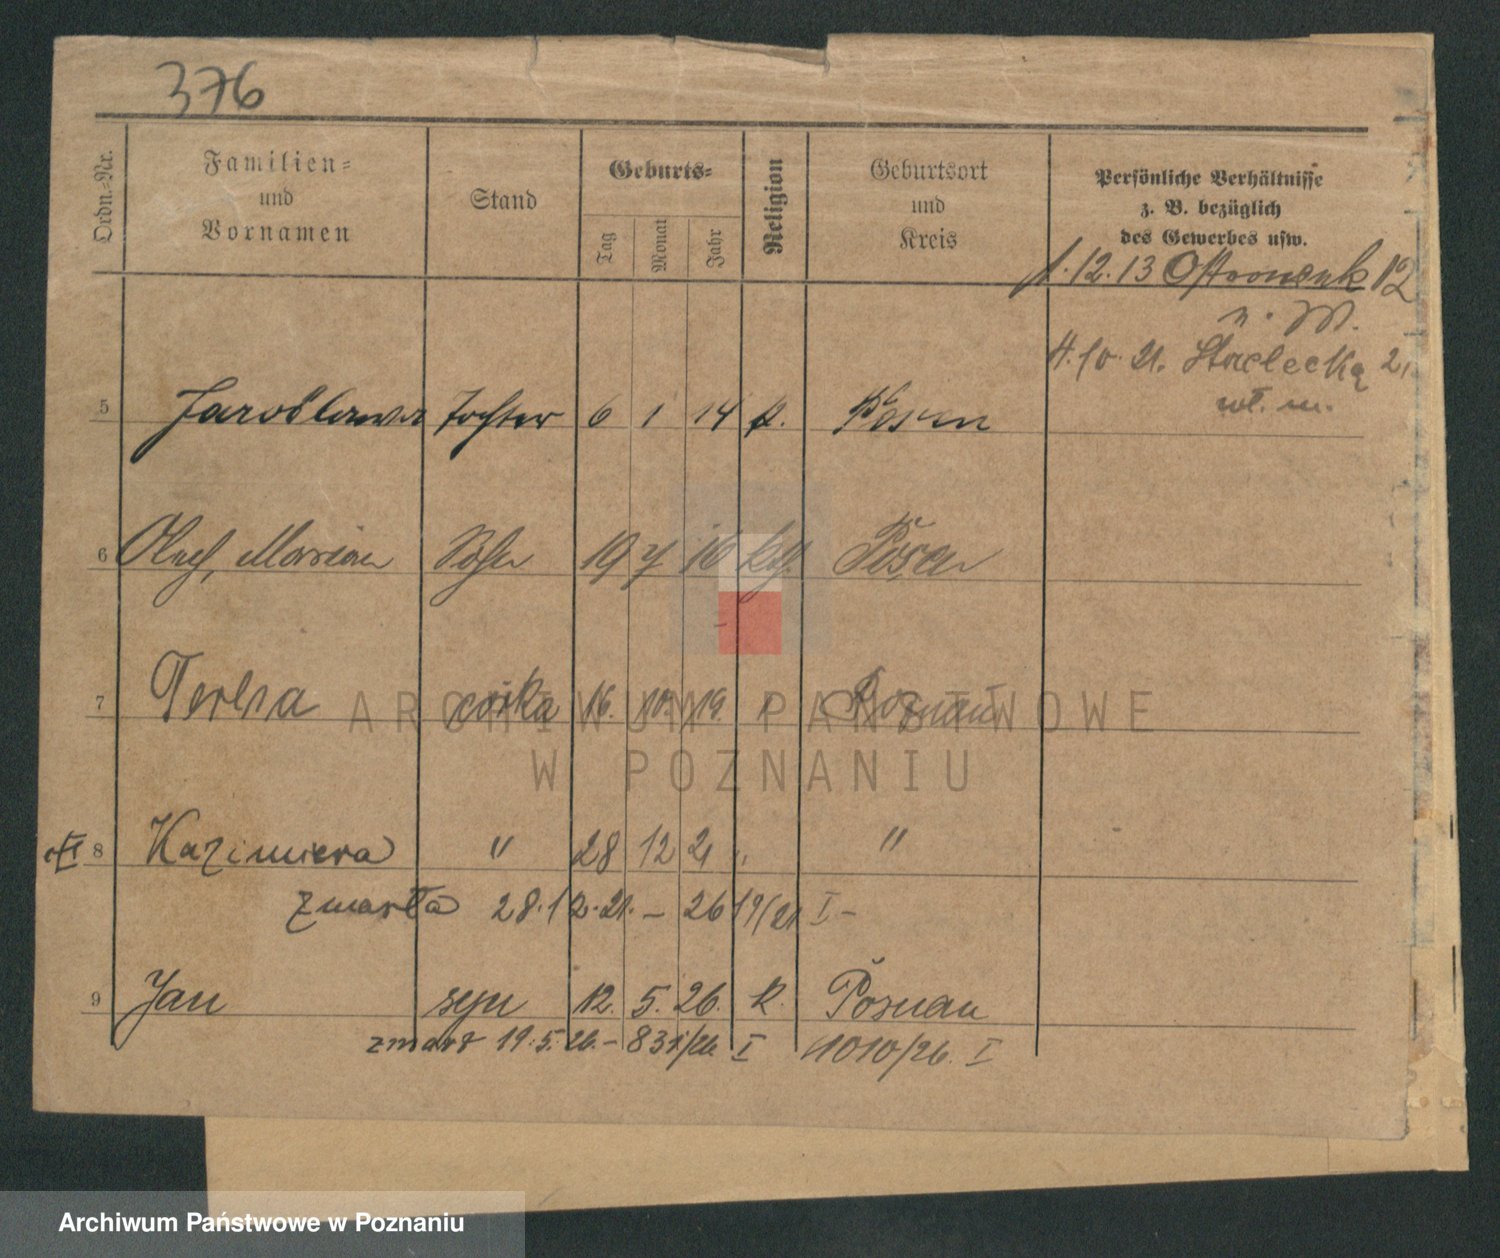 376
Ordn.-Nr.
Familien-
und
Vornamen
Stand
Geburts-
Tag
Monat
Jahr
Religion
Geburtsort
und
Kreis
Persönliche Verhältnisse
z. B. bezüglich
des Gewerbes usw.
1.12.13 12
4.10.21. Strzelecka 21
wł. m.
5 Jarosława Tochter 6 1 14 k. Posen
6 Marian Sohn 19 7 16 kth. Posen
7 Teresa córka 16. 10. 19. " Poznań
8 Kazimiera " 28 12 21 " "
zmarła 28.12.21. – 2619/21 I –
9 Jan syn 12. 5. 26. k. Poznań
zmarł 19.5.26. – 831/26 I 1010/26. I
ARCHIWUM PAŃSTWOWE
W POZNANIU
Archiwum Państwowe w Poznaniu